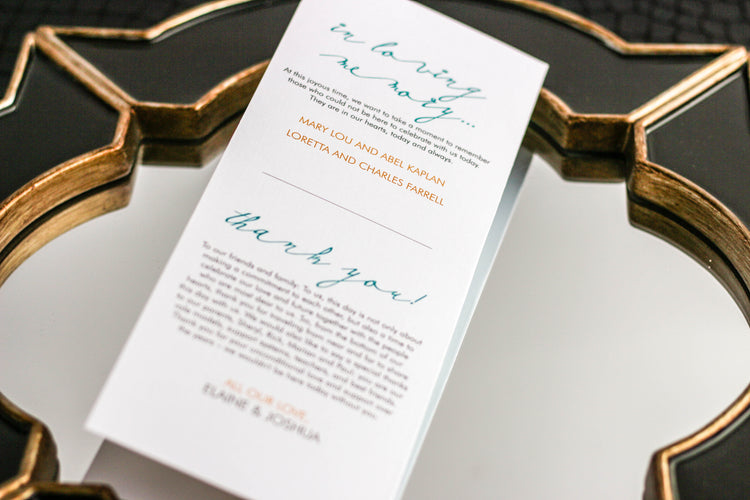 in loving
memory...
At this joyous time, we want to take a moment to remember
those who could not be here to celebrate with us today.
They are in our hearts, today and always.
MARY LOU AND ABEL KAPLAN
LORETTA AND CHARLES FARRELL
thank you!
To our friends and family: To us, this day is not only about
making a commitment to each other, but also a time to
celebrate our love and future together with the people
who are most dear to us. So, from the bottom of our
hearts, thank you for traveling from near and far to share
this day with us. We would also like to say a special thanks
to our parents, Sheryl, Rick, Marian and Paul: you are our
role models, support systems, teachers, and best friends.
Thank you for your unconditional love and support over
the years – we wouldn't be here today without you.
ALL OUR LOVE,
ELAINE & JOSHUA